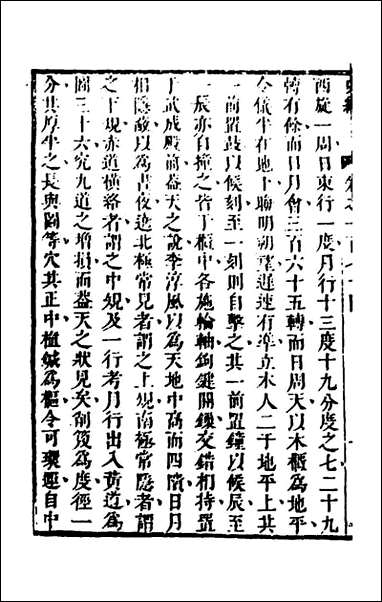 西旋一周日東行一度月行十三度十九分度之七二十九
轉有餘而日月會三百六十五轉而日周天以木櫃為地平
令儀半在地下晦明朔望遲速有準立木人二于地平上其
一前置鼓以候刻至一刻則自擊之其一前置鐘以候辰至
一辰亦自撞之皆于櫃中各施輪軸鉤鍵關鏁交錯相持置
于武成殿前蓋天之說李淳風以為天地中高而四隤日月
相隱蔽以為晝夜遶北極常見者謂之上規南極常隱者謂
之下規赤道橫絡者謂之中規及一行考月行出入黃道為
圖三十六究九道之增損而蓋天之狀見矣削篾為度徑一
分其厚半之長與圖等穴其正中植鍼為樞令可環運自中